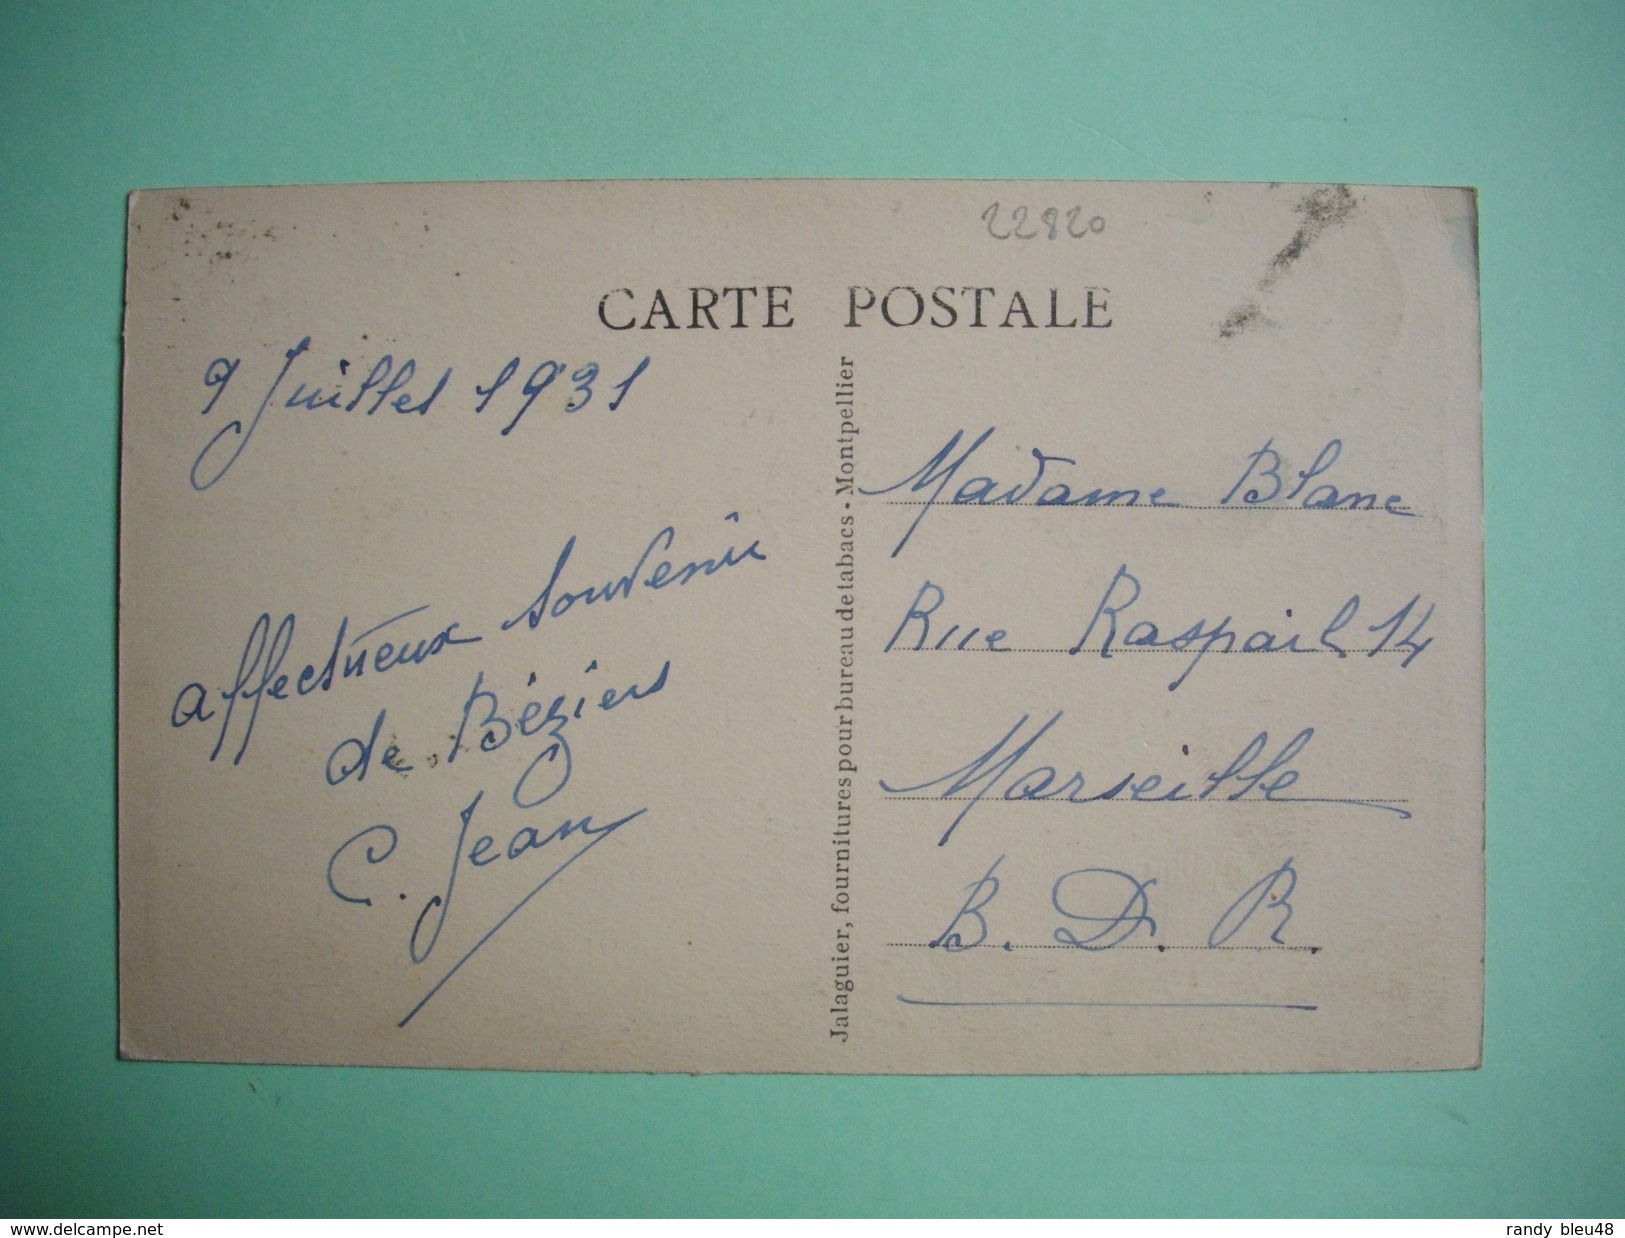 22820
CARTE POSTALE
9 Juillet 1931
affectueux souvenir
de Béziers
C. Jean
Jalaguier, fournitures pour bureau de tabacs - Montpellier
Madame Blanc
Rue Raspail 14
Marseille
B. D. R.
www.delcampe.net
randy_bleu48